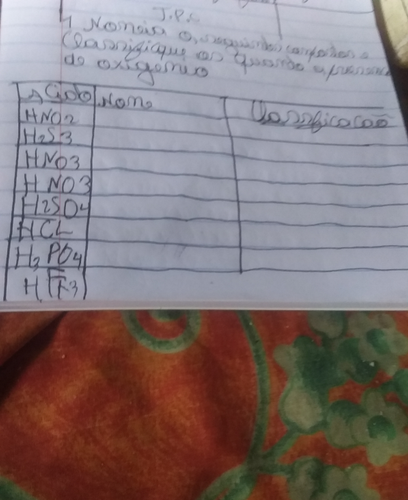 T.P.C
1 Nomeia os seguintes compostos e
Classifique os quanto a presença
de oxigenio
Acido Nome Classificação
HNO2
H2S3
HNO3
HNO3
H2SO4
HCL
H2PO4
H F3